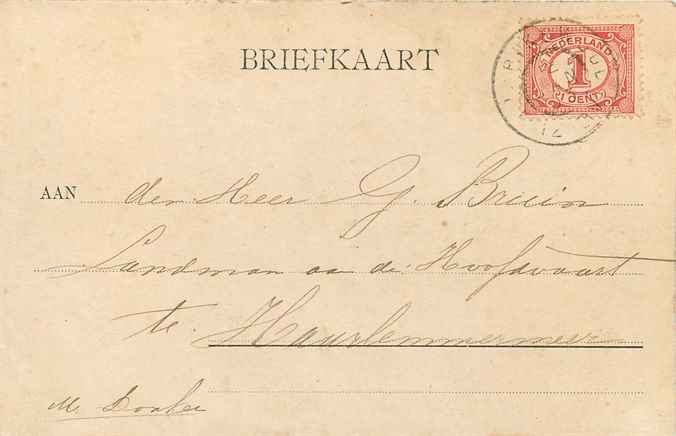 BRIEFKAART
NEDERLAND
1
1 CENT
AAN den Heer G. Bruin
Landman aa de Hoofdvaart
te Haarlemmermeer